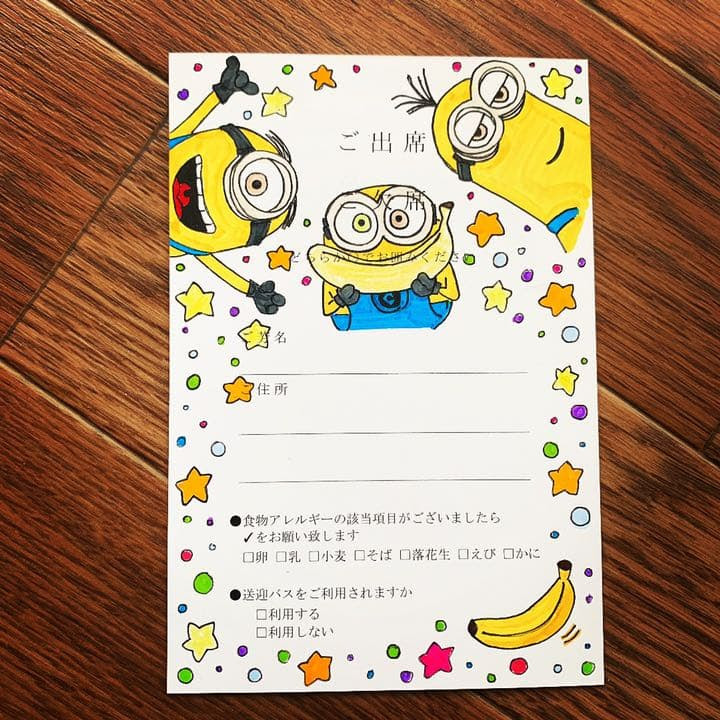 ご出席
席
どちらかいでお囲みくださ
ご芳名
住所
●食物アレルギーの該当項目がございましたら
✓をお願い致します
□卵 □乳 □小麦 □そば □落花生 □えび □かに
●送迎バスをご利用されますか
□利用する
□利用しない